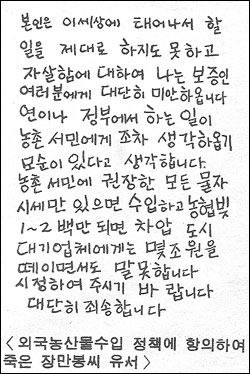 본인은 이세상에 태어나서 할
일을 제대로 하지도 못하고
자살함에 대하여 나는 보증인
여러분에게 대단히 미안하옵니다
연이나 정부에서 하는 일이
농촌 서민에게 조차 생각하옵기
모순이 있다고 생각합니다.
농촌 서민에 권장한 모든 물자
시세만 있으면 수입하고 농협빚
1~2백만 되면 차압 도시
대기업체에게는 몇조원을
떼이면서도 말못합니다
시정하여 주시기 바랍니다
대단히 죄송합니다
< 외국농산물수입 정책에 항의하여
죽은 장만봉씨 유서 >